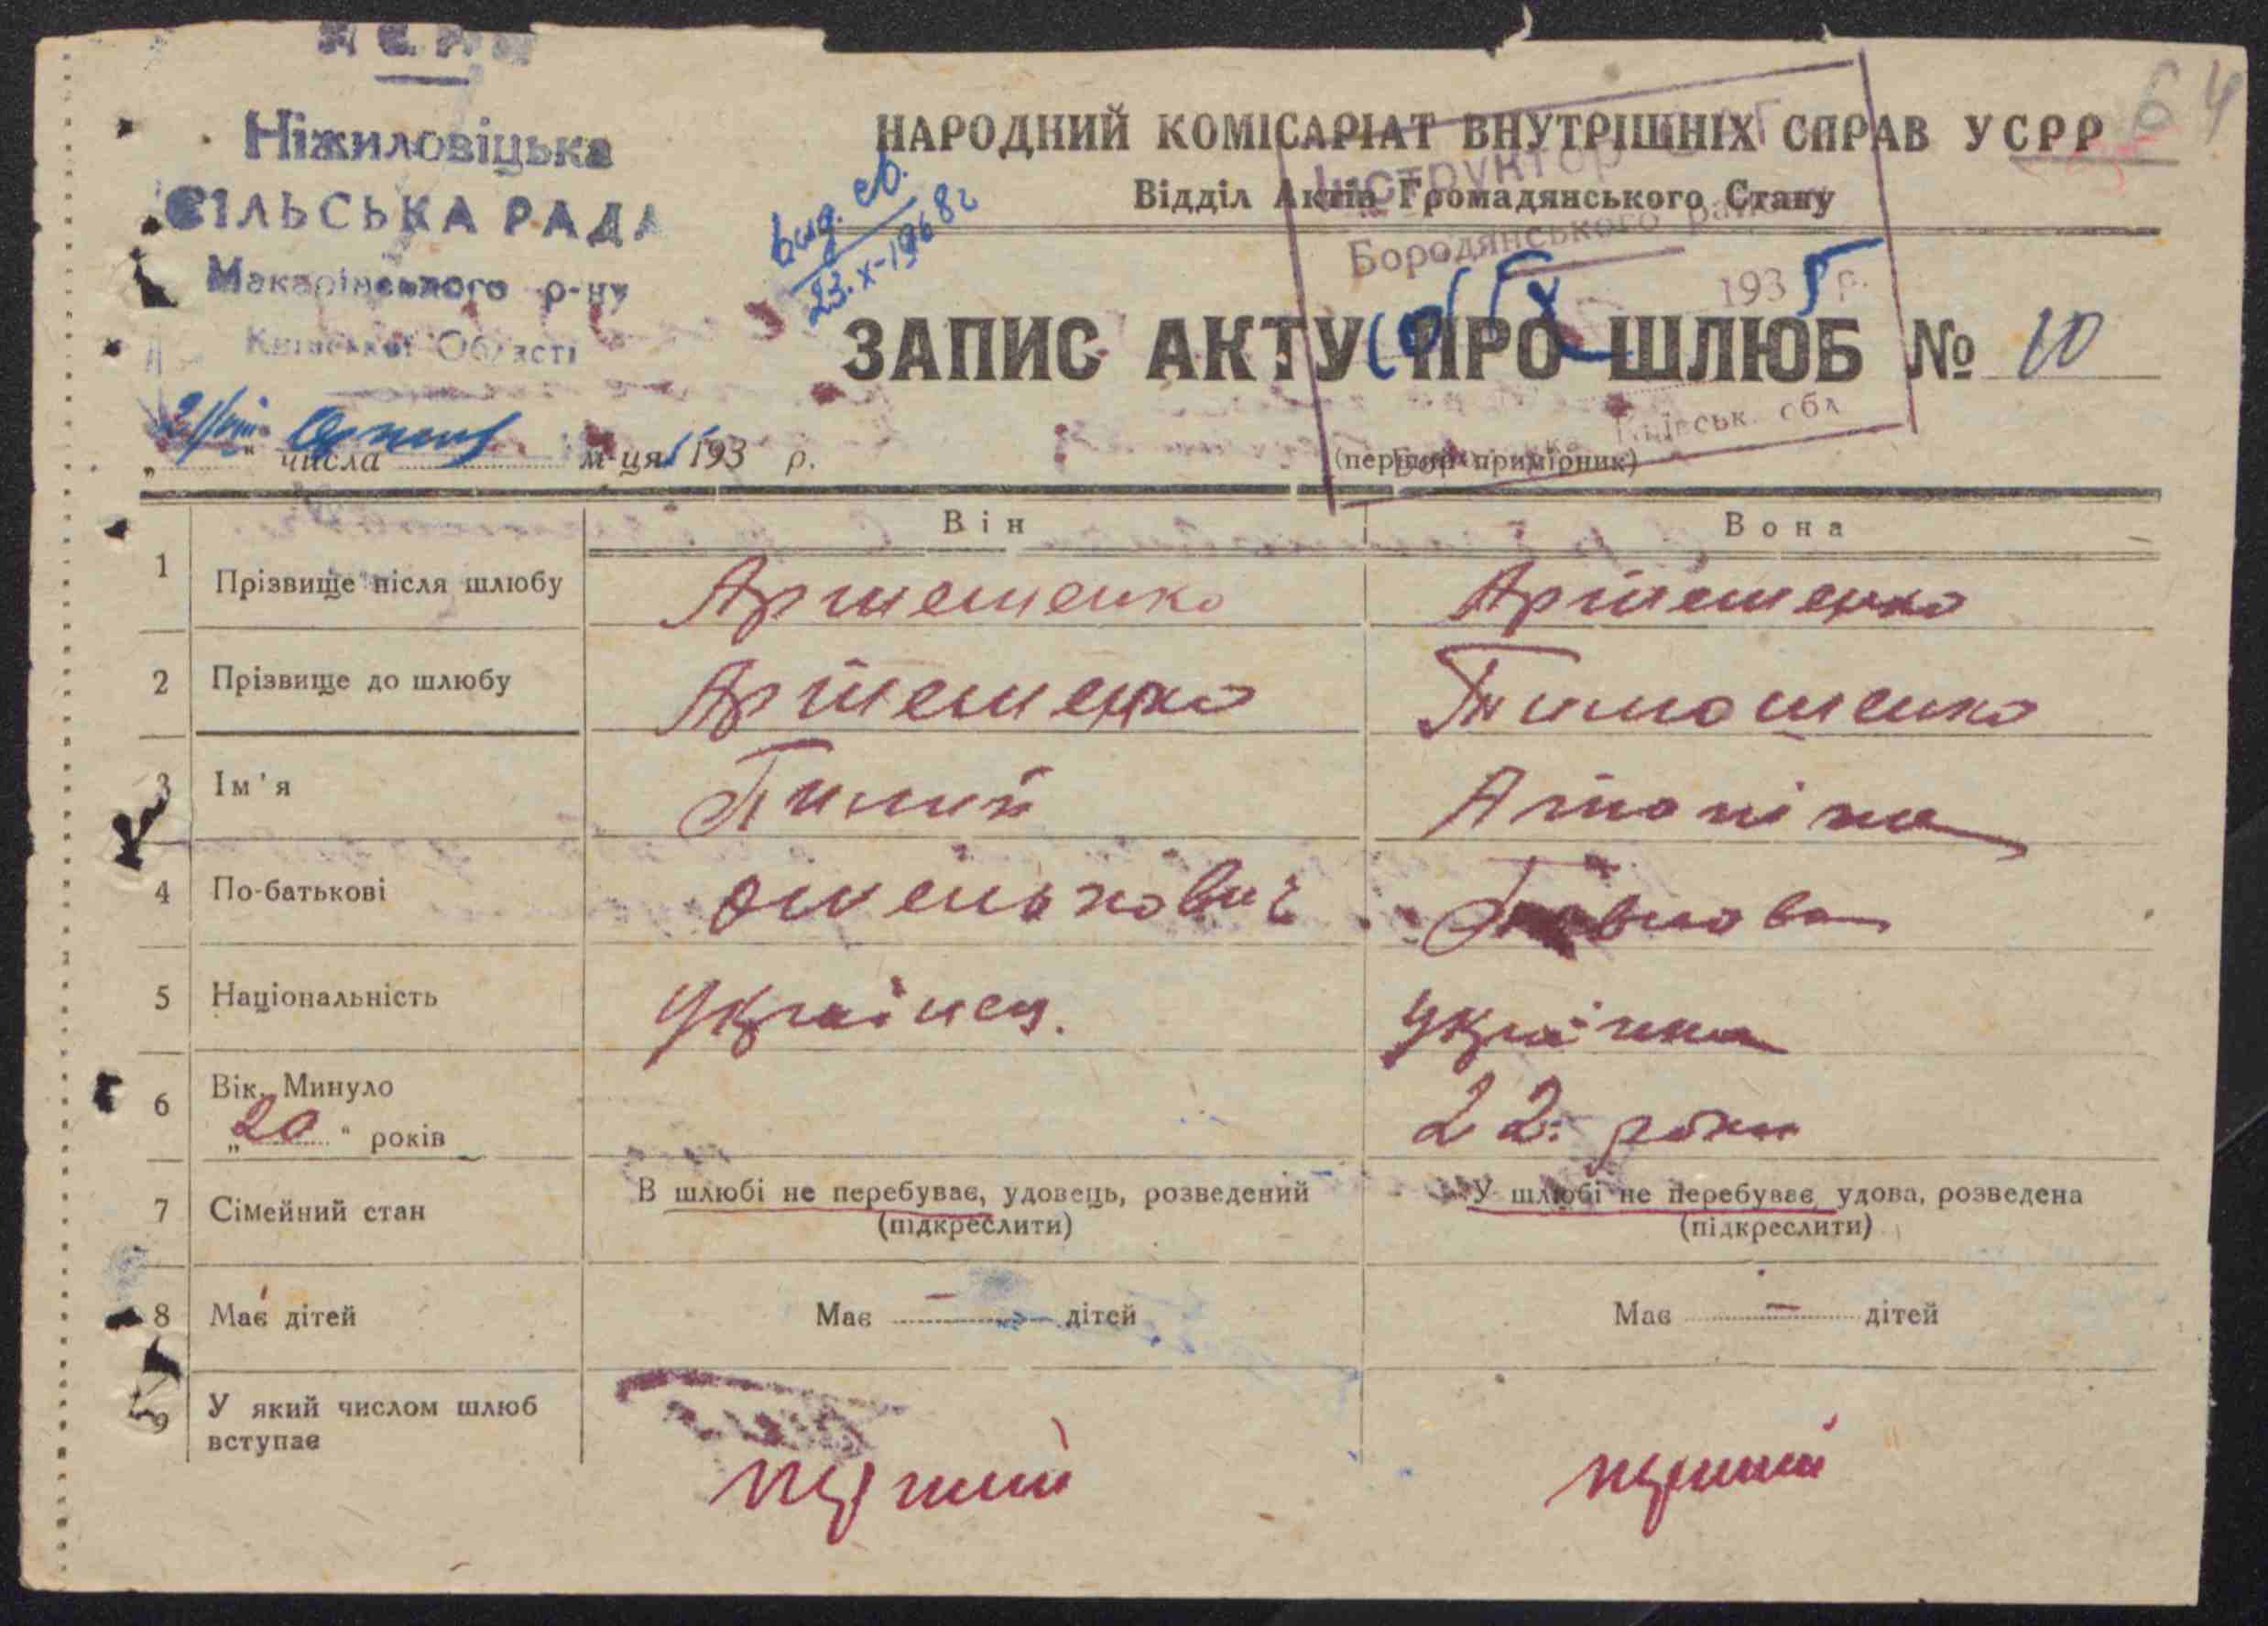 Ніжиловіцька
СІЛЬСЬКА РАДА
Макарівського р-ну
Київської Області
64
НАРОДНИЙ КОМІСАРІАТ ВНУТРІШНІХ СПРАВ УСРР
Відділ Актів Громадянського Стану
Інструктор
Бородянського району
1935 р.
Київськ. обл
вид. св.
23.X-1968г
ЗАПИС АКТУ ПРО ШЛЮБ № 10
„21“ числа м-ця 193 р.
(перший примірник)
Він Вона
1 Прізвище після шлюбу Артеменко Артеменко
2 Прізвище до шлюбу Артеменко Тимошенко
3 Ім'я Пилип Атоніна
4 По-батькові Омелькович Павлова
5 Національність Українец. Українка
6 Вік. Минуло „20“ років 22. роки
7 Сімейний стан В шлюбі не перебуває, удовець, розведений (підкреслити) У шлюбі не перебуває, удова, розведена (підкреслити)
8 Має дітей Має — дітей Має — дітей
9 У який числом шлюб вступає перший перший